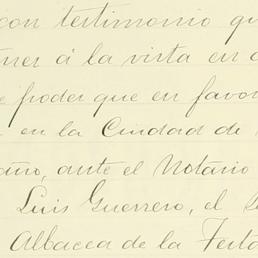 con testimonio qu
ner á la vista en c
e poder que en favor
en la Ciudad de
año, ante el Notario
Luis Guerrero, el
Albacea de la Testa